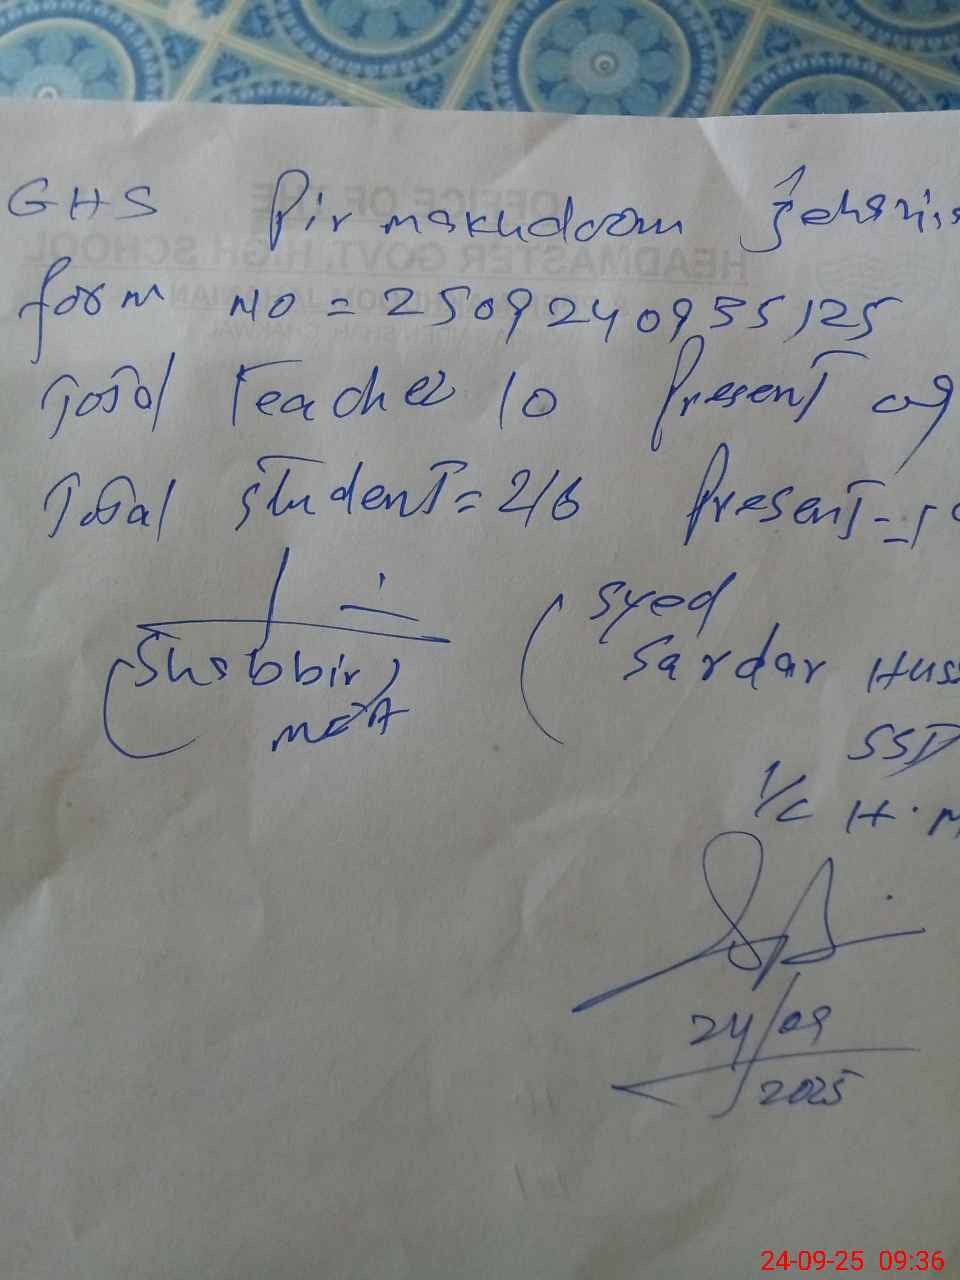 GHS Pir makhdoom
form no = 2509240935125
Total Teacher 10 Present 09
Total student = 216 Present =
(Shabbir)
MEA
(Syed
Sardar
I/C H.M
24/09
2025
OFFICE OF THE
HEADMASTER GOVT. HIGH SCHOOL
24-09-25 09:36